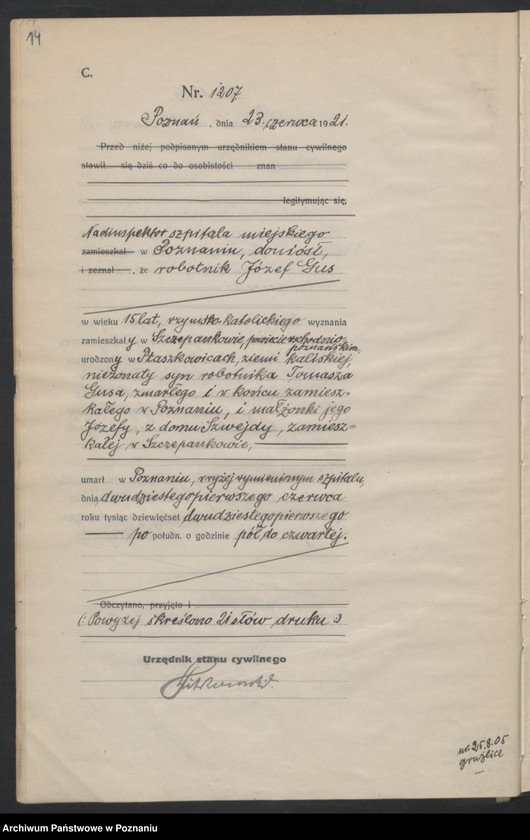 14
C.
Nr. 1207
Poznań, dnia 23. czerwca 1921.
Przed niżej podpisanym urzędnikiem stanu cywilnego
stawił się dziś co do osobistości znan
legitymując się,
Nadinspektor szpitala miejskiego
zamieszkał w Poznaniu, doniósł,
i zeznał, że robotnik Józef Gus
w wieku 15 lat, rzymsko katolickiego wyznania
zamieszkały w Szczepankowie, powiecie wschodnio
poznańskim,
urodzony w Ptaszkowicach, ziemi kaliskiej,
nieżonaty syn robotnika Tomasza
Gusa, zmarłego i w końcu zamiesz=
kałego w Poznaniu, i małżonki jego
Józefy, z domu Szwejdy, zamiesz=
kałej w Szczepankowie,
umarł w Poznaniu, wyżej wymienionym szpitalu,
dnia dwudziestegopierwszego czerwca
roku tysiąc dziewięćset dwudziestegopierwszego
po połudn. o godzinie pół do czwartej.
Odczytano, przyjęto i
(: Powyżej skreślono 21 słów druku :)
Urzędnik stanu cywilnego
ur. 25.8.05
gruźlice
Archiwum Państwowe w Poznaniu